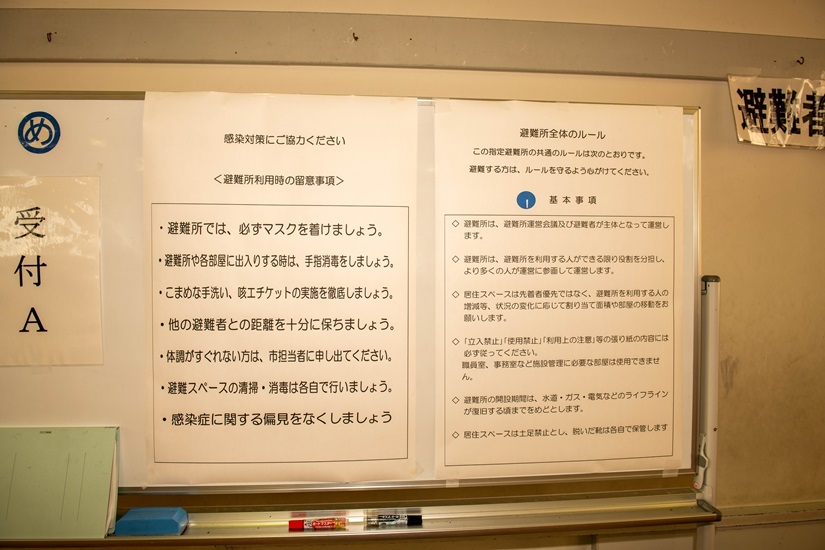 め
受付A
感染対策にご協力ください
＜避難所利用時の留意事項＞
・避難所では、必ずマスクを着けましょう。
・避難所や各部屋に出入りする時は、手指消毒をしましょう。
・こまめな手洗い、咳エチケットの実施を徹底しましょう。
・他の避難者との距離を十分に保ちましょう。
・体調がすぐれない方は、市担当者に申し出てください。
・避難スペースの清掃・消毒は各自で行いましょう。
・感染症に関する偏見をなくしましょう
避難所全体のルール
この指定避難所の共通のルールは次のとおりです。
避難する方は、ルールを守るよう心がけてください。
! 基本事項
◇ 避難所は、避難所運営会議及び避難者が主体となって運営し
ます。
◇ 避難所は、避難所を利用する人ができる限り役割を分担し、
より多くの人が運営に参画して運営します。
◇ 居住スペースは先着者優先ではなく、避難所を利用する人の
増減等、状況の変化に応じて割り当て面積や部屋の移動をお
願いします。
◇ 「立入禁止」「使用禁止」「利用上の注意」等の張り紙の内容には
必ず従ってください。
職員室、事務室など施設管理に必要な部屋は使用できませ
ん。
◇ 避難所の開設期間は、水道・ガス・電気などのライフライン
が復旧する頃までをめどとします。
◇ 居住スペースは土足禁止とし、脱いだ靴は各自で保管します
避難者